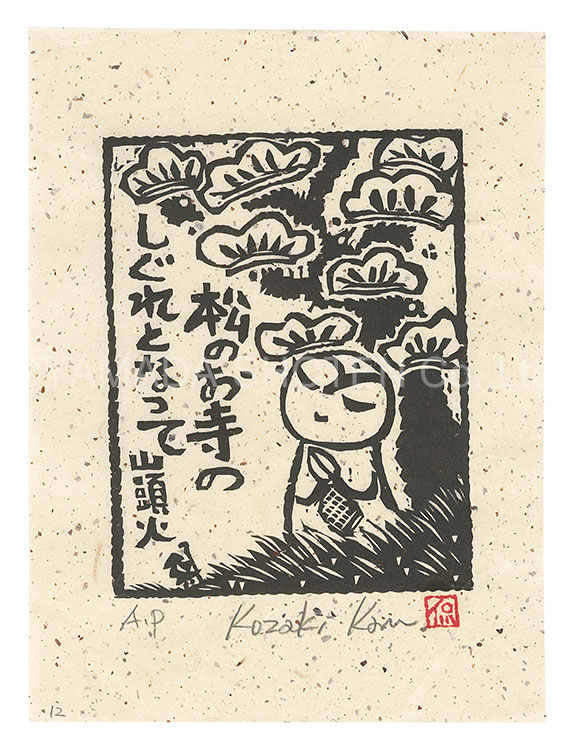 松のお寺の
しぐれとなって
山頭火
A.P
Kozaki Kan
侃
12